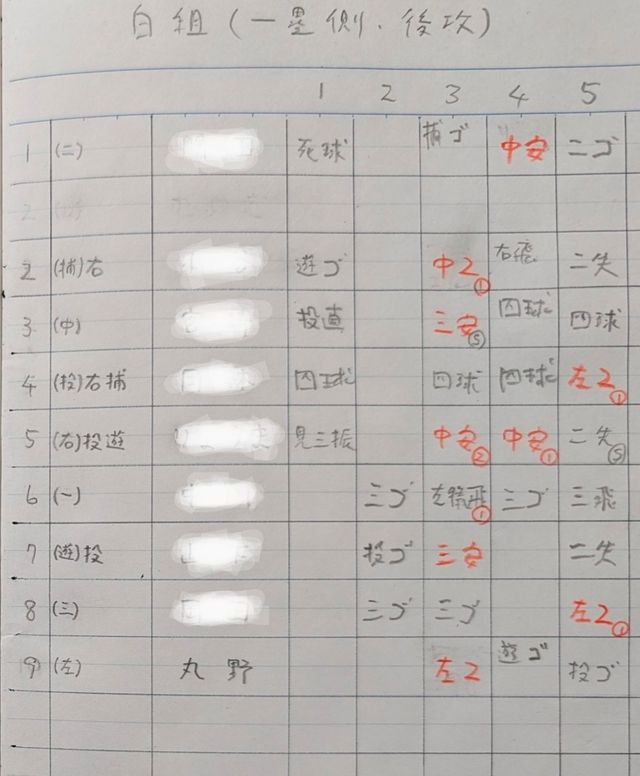 白組(一塁側、後攻)
1 2 3 4 5
1 (二) 死球 捕ゴ 中安 二ゴ
2
2 (捕)右 遊ゴ 中2① 右飛 二失
3 (中) 投直 三安Ⓢ 四球 四球
4 (投)右捕 四球 四球 四球 左2①
5 (右)投遊 見三振 中安② 中安① 二失Ⓢ
6 (一) 三ゴ 左犠飛① 三ゴ 三飛
7 (遊)投 投ゴ 三安 二失
8 (三) 三ゴ 三ゴ 左2①
9 (左) 丸野 左2 遊ゴ 投ゴ